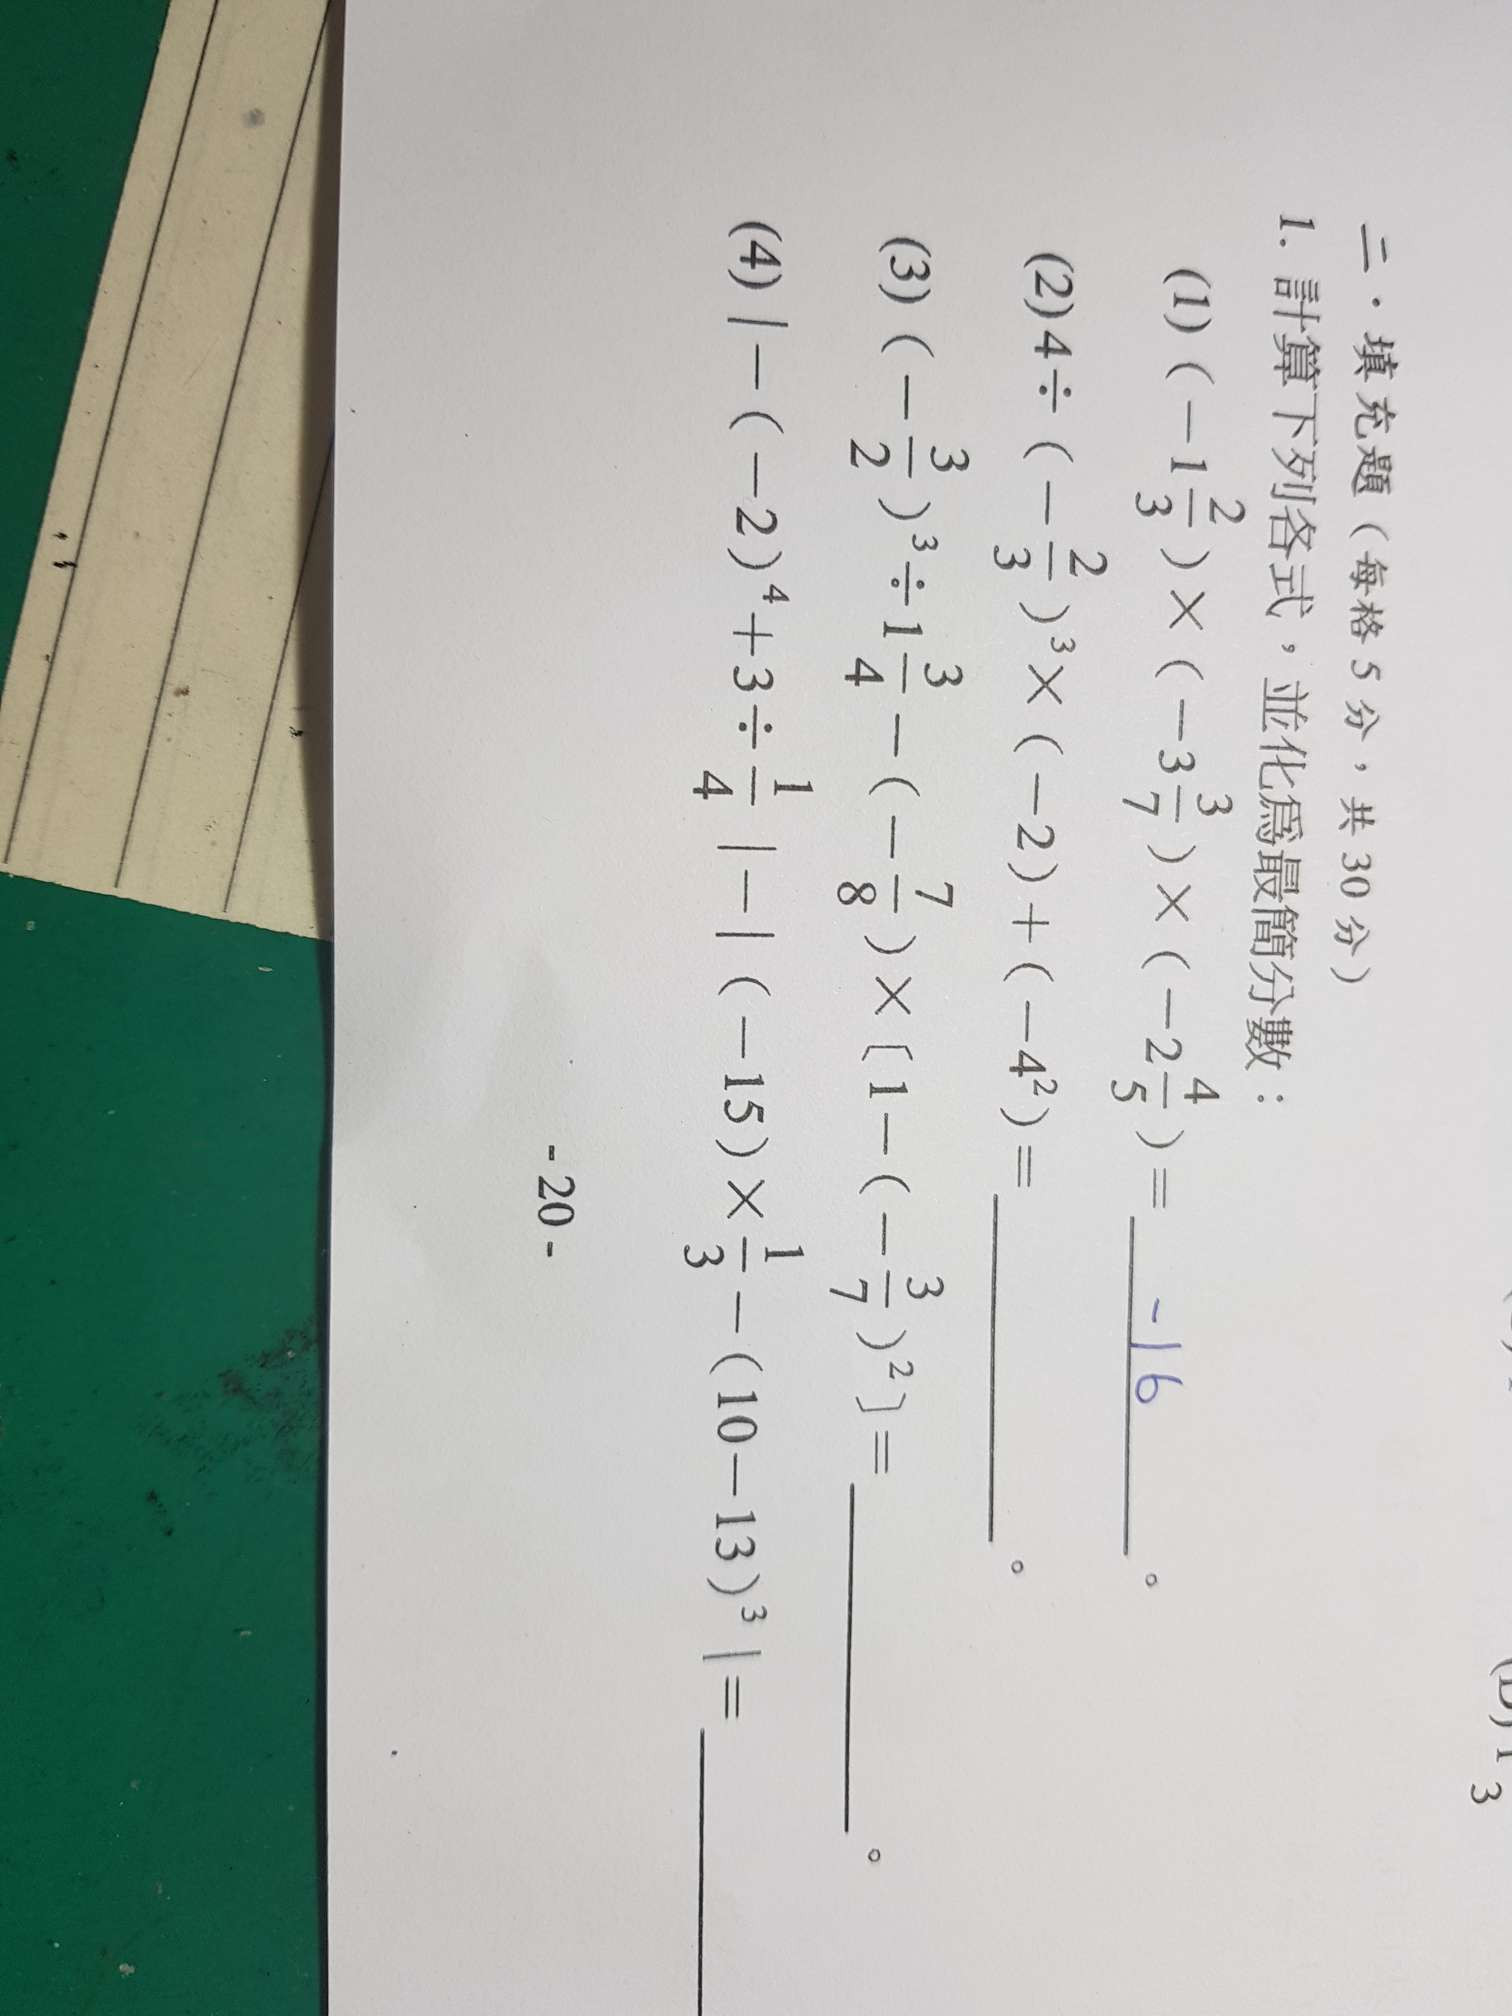 二、填充題（每格 5 分，共 30 分）
1. 計算下列各式，並化為最簡分數：
(1)(-1 2/3)×(-3 3/7)×(-2 4/5)= -16 。
(2)4÷(-2/3)³×(-2)+(-4²)= 。
(3)(-3/2)³÷1 3/4-(-7/8)×〔1-(-3/7)²〕= 。
(4)|-(-2)⁴+3÷1/4|-|(-15)×1/3-(10-13)³|=
-20-
3